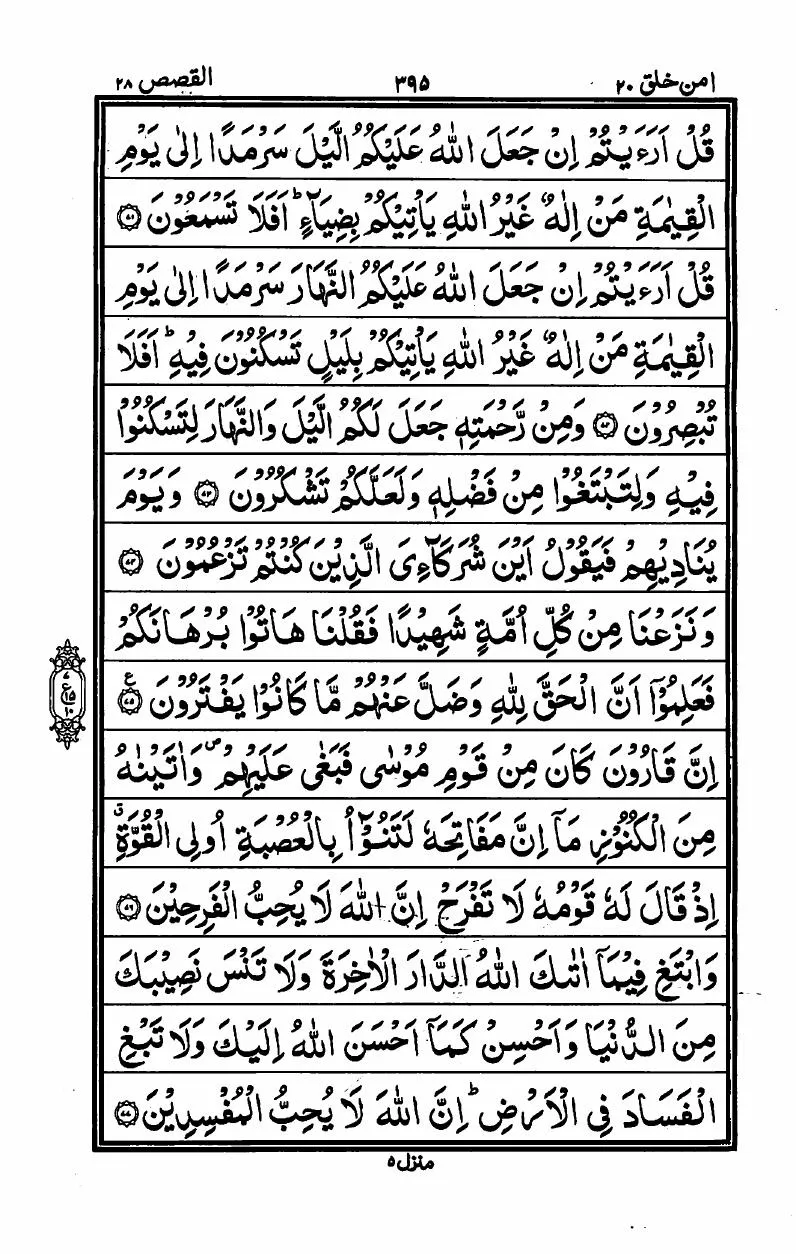 امن خلق ٢٠
٣٩٥
القصص ٢٨
قُلْ اَرَءَيْتُمْ اِنْ جَعَلَ اللّٰهُ عَلَيْكُمُ الَّيْلَ سَرْمَدًا اِلٰى يَوْمِ
الْقِيٰمَةِ مَنْ اِلٰهٌ غَيْرُ اللّٰهِ يَاْتِيْكُمْ بِضِيَآءٍ ؕ اَفَلَا تَسْمَعُوْنَ ۝۷۱
قُلْ اَرَءَيْتُمْ اِنْ جَعَلَ اللّٰهُ عَلَيْكُمُ النَّهَارَ سَرْمَدًا اِلٰى يَوْمِ
الْقِيٰمَةِ مَنْ اِلٰهٌ غَيْرُ اللّٰهِ يَاْتِيْكُمْ بِلَيْلٍ تَسْكُنُوْنَ فِيْهِ ؕ اَفَلَا
تُبْصِرُوْنَ ۝۷۲ وَمِنْ رَّحْمَتِهٖ جَعَلَ لَكُمُ الَّيْلَ وَالنَّهَارَ لِتَسْكُنُوْا
فِيْهِ وَلِتَبْتَغُوْا مِنْ فَضْلِهٖ وَلَعَلَّكُمْ تَشْكُرُوْنَ ۝۷۳ وَيَوْمَ
يُنَادِيْهِمْ فَيَقُوْلُ اَيْنَ شُرَكَآءِىَ الَّذِيْنَ كُنْتُمْ تَزْعُمُوْنَ ۝۷۴
وَنَزَعْنَا مِنْ كُلِّ اُمَّةٍ شَهِيْدًا فَقُلْنَا هَاتُوْا بُرْهَانَكُمْ
فَعَلِمُوْٓا اَنَّ الْحَقَّ لِلّٰهِ وَضَلَّ عَنْهُمْ مَّا كَانُوْا يَفْتَرُوْنَ ۝۷۵ ع
۷
ع
۱۵
۱۰
اِنَّ قَارُوْنَ كَانَ مِنْ قَوْمِ مُوْسٰى فَبَغٰى عَلَيْهِمْ ۪ وَاٰتَيْنٰهُ
مِنَ الْكُنُوْزِ مَآ اِنَّ مَفَاتِحَهٗ لَتَنُوْٓاُ بِالْعُصْبَةِ اُولِى الْقُوَّةِ ۗ
اِذْ قَالَ لَهٗ قَوْمُهٗ لَا تَفْرَحْ اِنَّ اللّٰهَ لَا يُحِبُّ الْفَرِحِيْنَ ۝۷۶
وَابْتَغِ فِيْمَآ اٰتٰىكَ اللّٰهُ الدَّارَ الْاٰخِرَةَ وَلَا تَنْسَ نَصِيْبَكَ
مِنَ الدُّنْيَا وَاَحْسِنْ كَمَآ اَحْسَنَ اللّٰهُ اِلَيْكَ وَلَا تَبْغِ
الْفَسَادَ فِى الْاَرْضِ ؕ اِنَّ اللّٰهَ لَا يُحِبُّ الْمُفْسِدِيْنَ ۝۷۷
منزل ٥